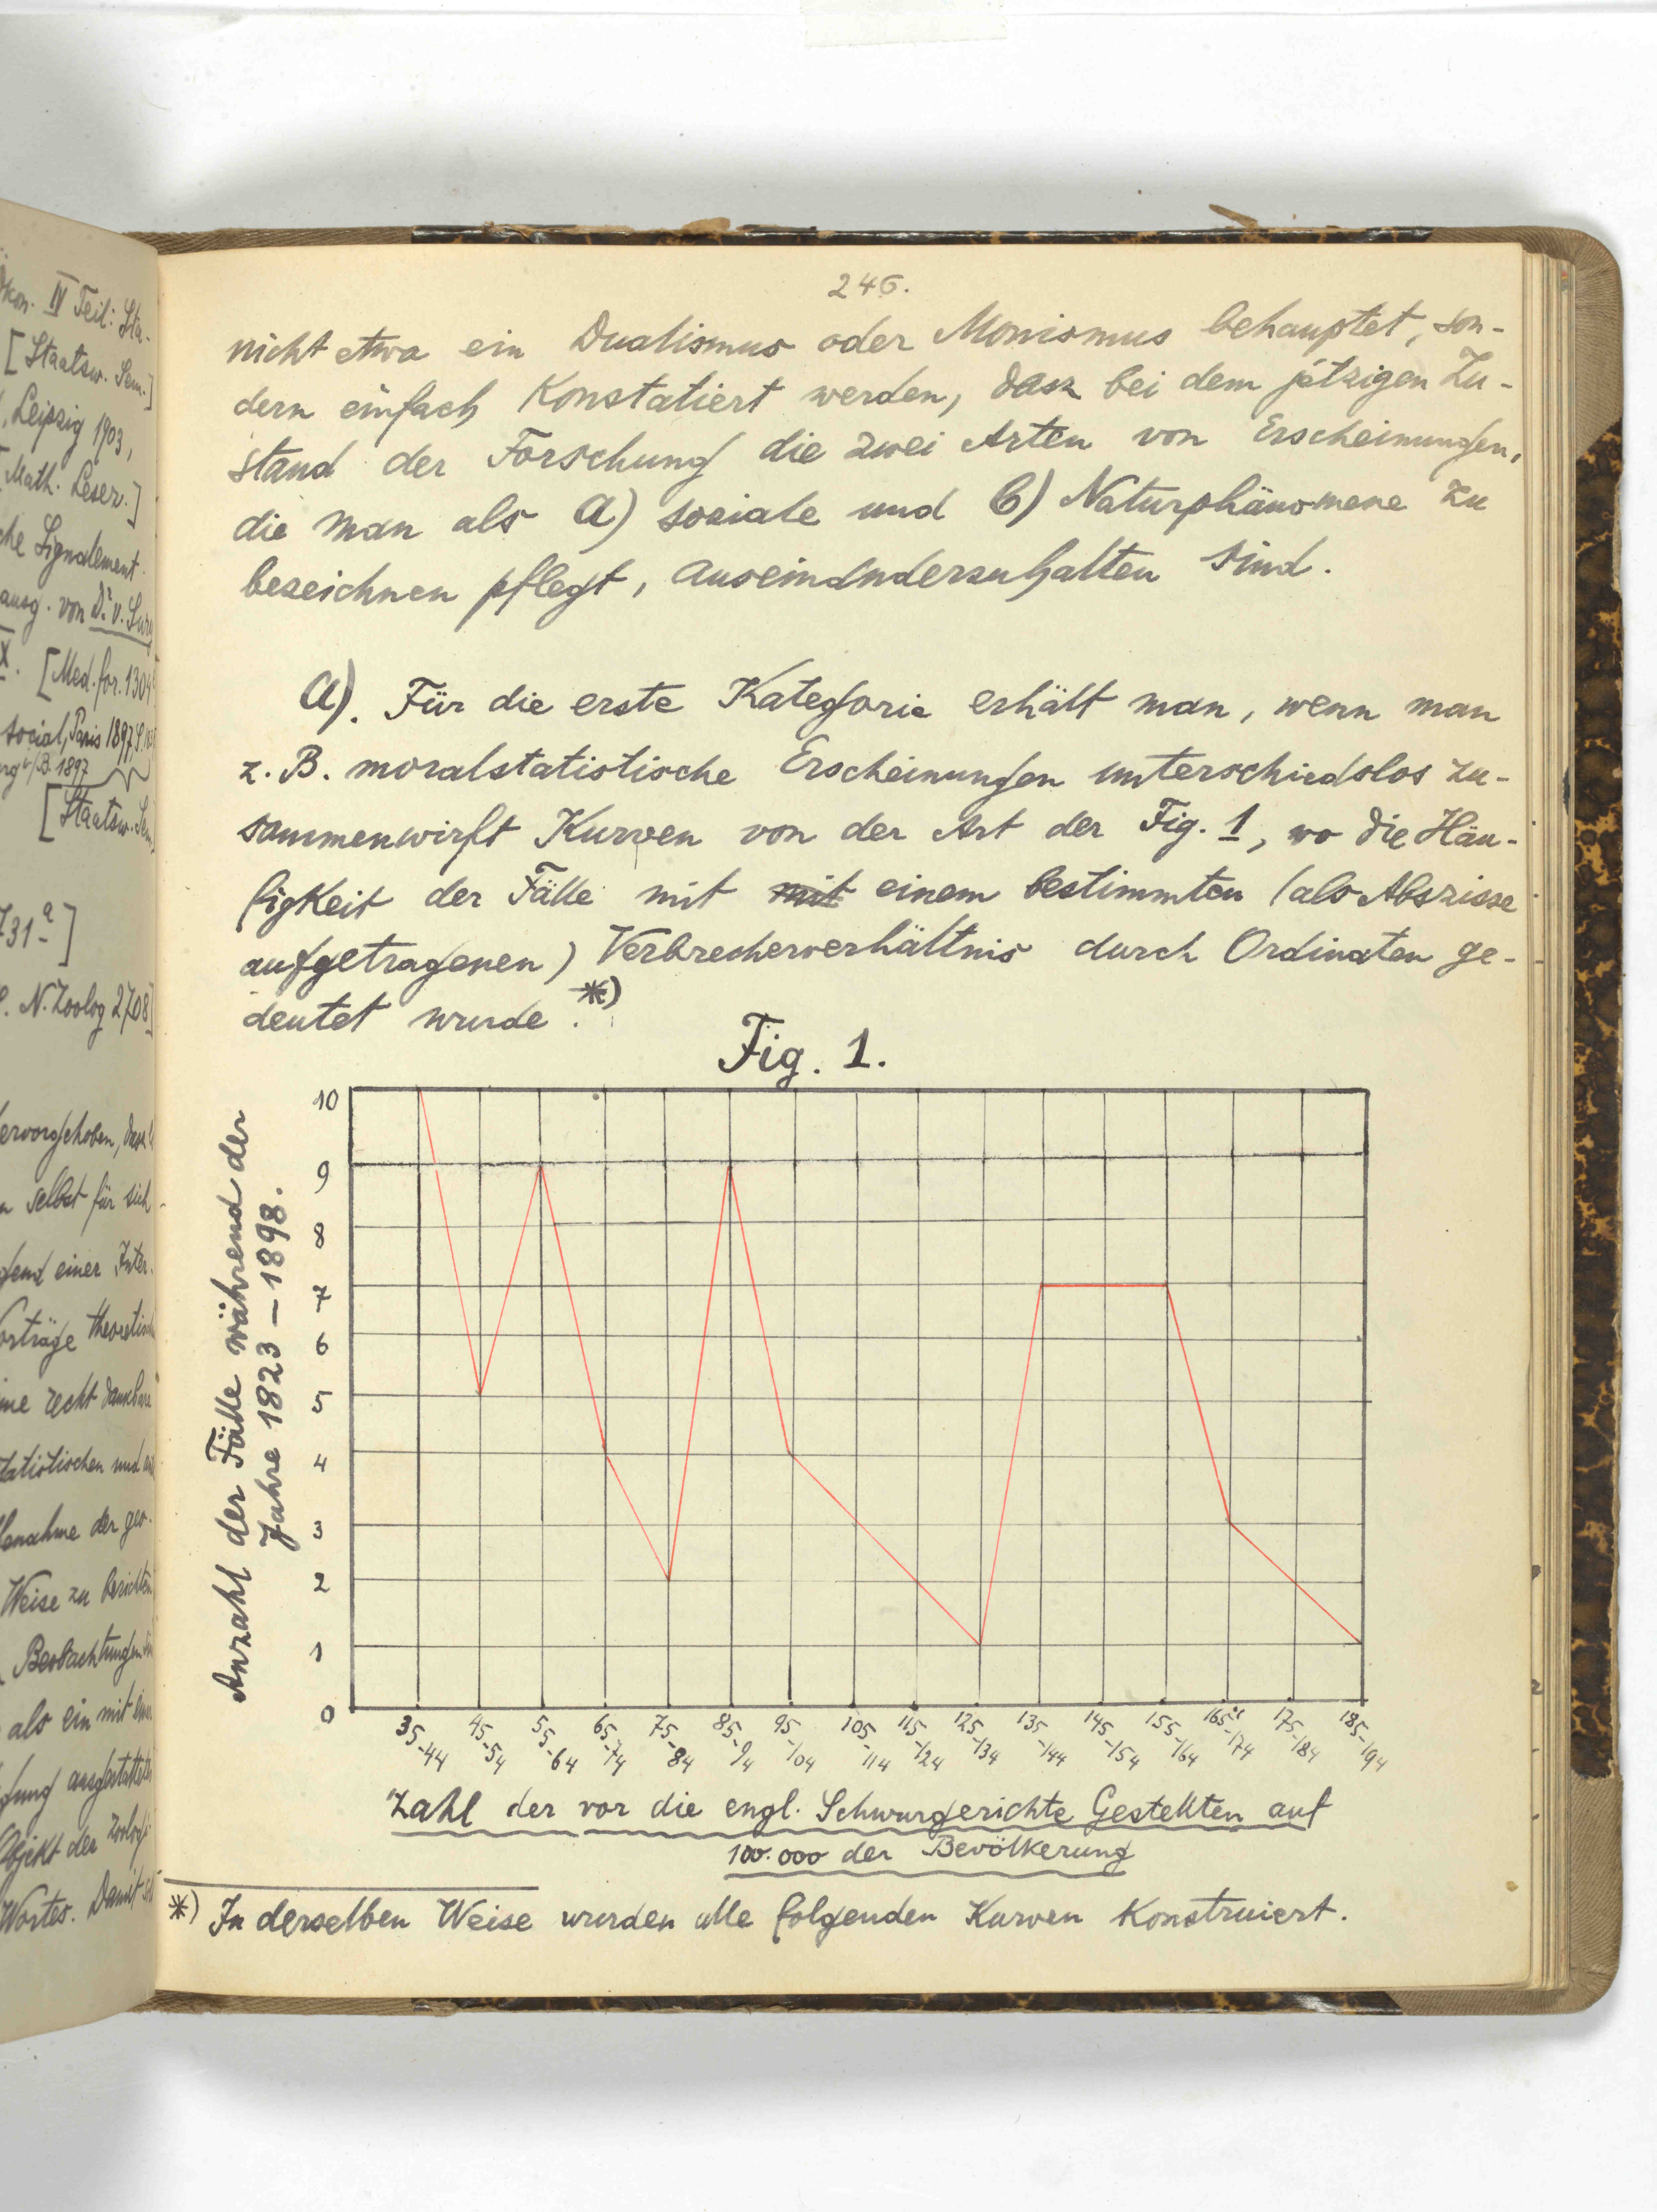 ökon. IV Teil: Sta-
[Staatsw. Sem.]
Leipzig 1903,
Math. Leser.]
che Signalement
ausg. von Dr. v. Sury
X. [Med. for. 1304
social, Paris 1897
1897
[Staatsw. Sem
731a]
N. Zoolog 2708]
hervorgehoben, dass
selbst für sich
gend einer Inter-
Vorträge theoretisch
eine recht dankbare
statistischen und
nahme der geo-
Weise zu berichten
Beobachtungen
als ein mit
fung ausgestattetes
Objekt der Zoologi-
Wortes. Damit
246.
nicht etwa ein Dualismus oder Monismus behauptet, son-
dern einfach Konstatiert werden, dasz bei dem jetzigen Zu-
stand der Forschung die zwei Arten von Erscheinungen,
die man als a) soziale und b) Naturphänomene zu
bezeichnen pflegt, auseinanderzuhalten sind.
a). Für die erste Kategorie erhält man, wenn man
z. B. moralstatistische Erscheinungen unterschiedslos zu-
sammenwirft Kurven von der Art der Fig. 1, wo die Häu-
figkeit der Fälle mit mit einem bestimmten (als Abszisse
aufgetragenen) Verbrecherverhältnis durch Ordinaten ge-
deutet wurde.*)
Fig. 1.
Anzahl der Fälle während der
Jahre 1823 – 1898.
10
9
8
7
6
5
4
3
2
1
0
35-44 45-54 55-64 65-74 75-84 85-94 95-104 105-114 115-124 125-134 135-144 145-154 155-164 165-174 175-184 185-194
Zahl der vor die engl. Schwurgerichte Gestellten auf
100.000 der Bevölkerung
*) In derselben Weise wurden alle folgenden Kurven Konstruiert.